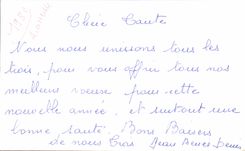 Chère Tante
Nous nous unissons tous les
trois, pour vous offrir tous nos
meilleurs voeux pour cette
nouvelle année, et surtout une
bonne santé. Bons Baisers
de nous trois